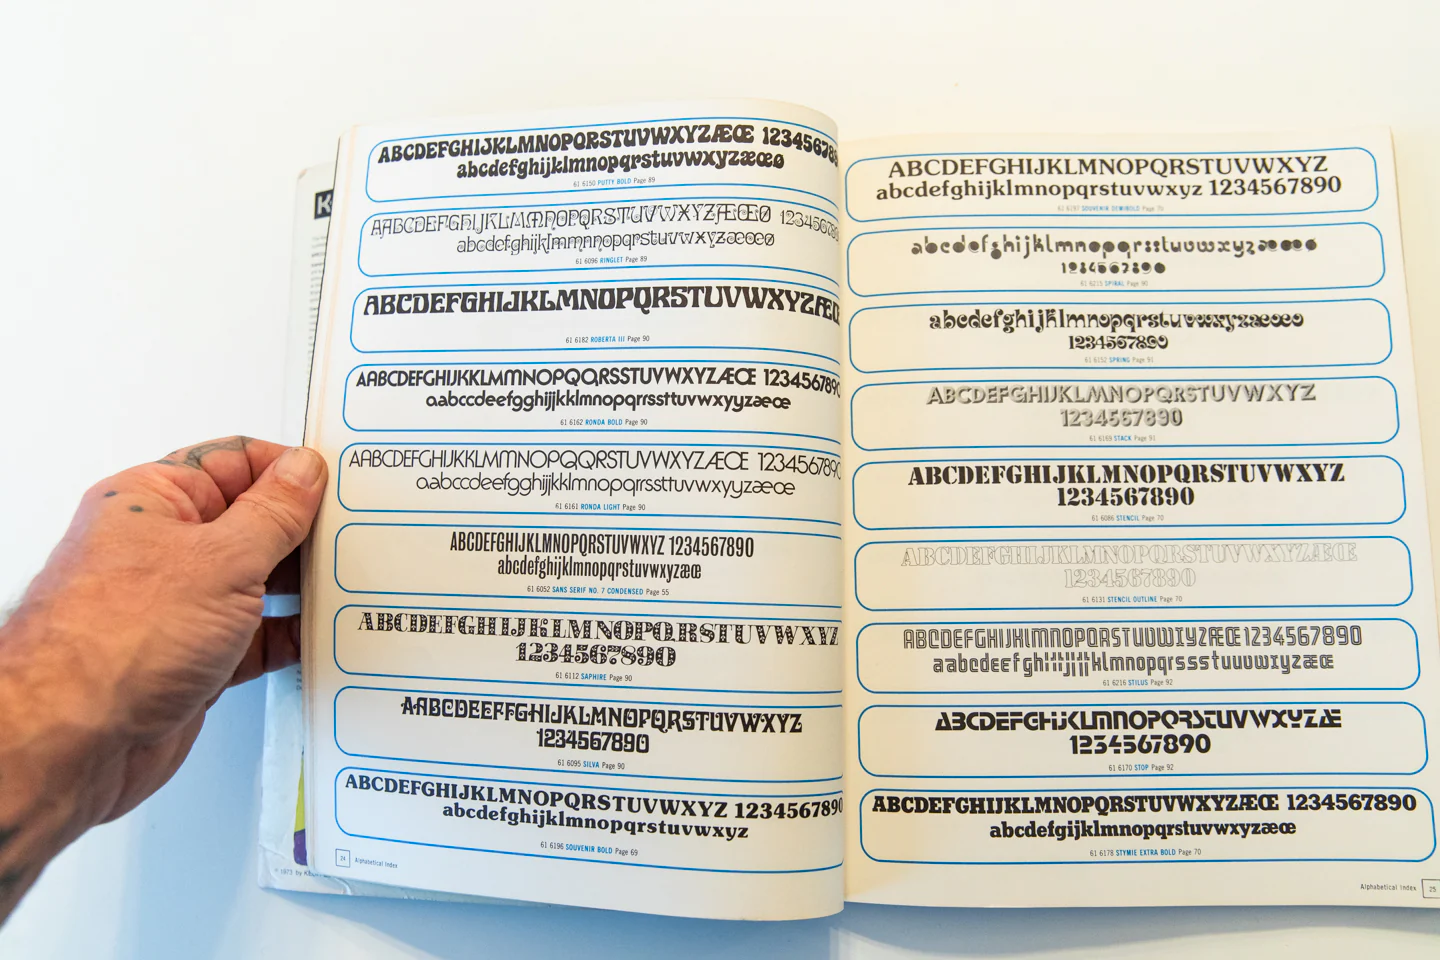 K
ABCDEFGHIJKLMNOPQRSTUVWXYZÆŒ 123456789
abcdefghijklmnopqrstuvwxyzæœø
61 6150 PUTTY BOLD Page 89
AABCDEFGhIJKLMMNOPQRSTUVWXYZÆŒØ 1234567890
abcdefghijklmmnnopqrstuvwxyzæœø
61 6096 RINGLET Page 89
ABCDEFGHIJKLMNOPQRSTUVWXYZÆŒ
61 6182 ROBERTA III Page 90
AABCDEFGHIJKKLMMNOPQQRSSTUVWXYZÆŒ 1234567890
aabccdeefgghijjkklmnopqrrssttuvwxyyzæœ
61 6162 RONDA BOLD Page 90
AABCDEFGHIJKKLMMNOPQQRSTUVWXYZÆŒ 1234567890
aabccdeefgghijjkklmnopqrssttuvwxyyzæœ
61 6161 RONDA LIGHT Page 90
ABCDEFGHIJKLMNOPQRSTUVWXYZ 1234567890
abcdefghijklmnopqrstuvwxyzæœ
61 6052 SANS SERIF NO. 7 CONDENSED Page 55
ABCDEFGHIJKLMNOPQRSTUVWXYZ
1234567890
61 6112 SAPHIRE Page 90
AABCDEEFFGHIJKLMNOPQRSTUVWXYZ
1234567890
61 6095 SILVA Page 90
ABCDEFGHIJKLMNOPQRSTUVWXYZ 1234567890
abcdefghijklmnopqrstuvwxyz
61 6196 SOUVENIR BOLD Page 69
24 Alphabetical Index
© 1973 by
ABCDEFGHIJKLMNOPQRSTUVWXYZ
abcdefghijklmnopqrstuvwxyz 1234567890
61 6197 SOUVENIR DEMIBOLD Page 70
abcdefghijklmnopqrstuvwxyzæœø
1234567890
61 6215 SPIRAL Page 90
abcdefghijklmnopqrstuvwxyzæœø
1234567890
61 6152 SPRING Page 91
ABCDEFGHIJKLMNOPQRSTUVWXYZ
1234567890
61 6169 STACK Page 91
ABCDEFGHIJKLMNOPQRSTUVWXYZ
1234567890
61 6086 STENCIL Page 70
ABCDEFGHIJKLMNOPQRSTUVWXYZÆŒ
1234567890
61 6131 STENCIL OUTLINE Page 70
ABCDEFGHIJKLMNOPQRSTUVWXYZÆŒ 1234567890
aabcdeefghiijjklmnopqrssstuuvwxyzæœ
61 6216 STILUS Page 92
ABCDEFGHIJKLMNOPQRSTUVWXYZÆ
1234567890
61 6170 STOP Page 92
ABCDEFGHIJKLMNOPQRSTUVWXYZÆŒ 1234567890
abcdefgijklmnopqrstuvwxyzæœ
61 6178 STYMIE EXTRA BOLD Page 70
Alphabetical Index 25